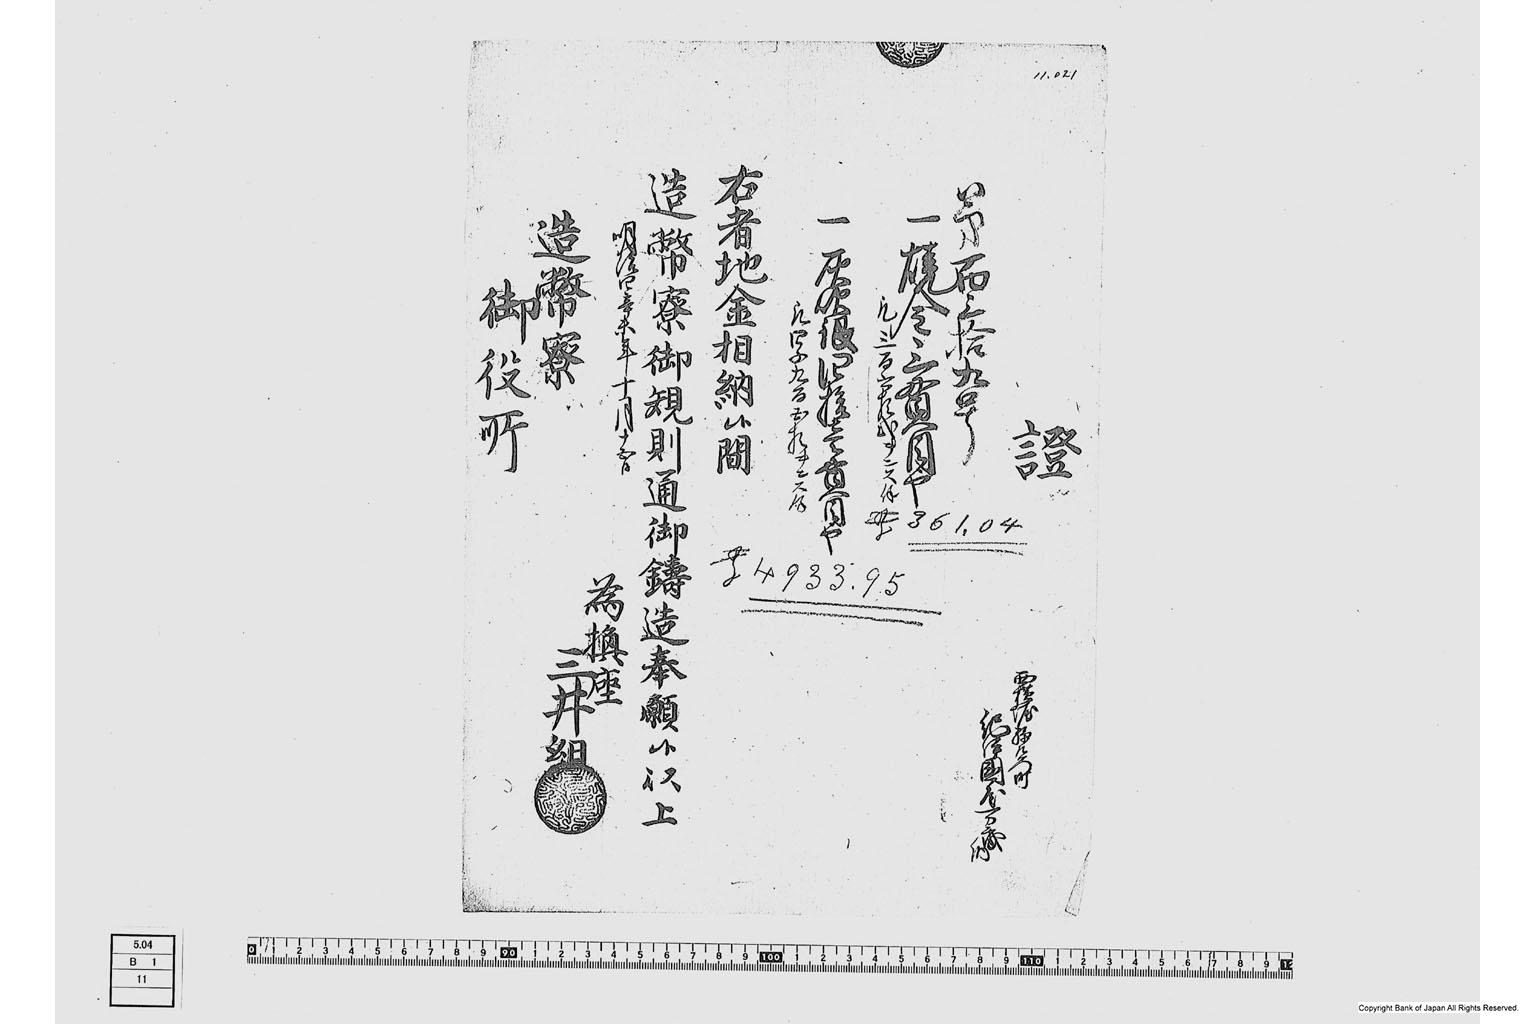 11.021
證
第百三拾九号
一 焼金三貫目也
￥361.04
一 灰吹銀
￥4933.95
右者地金相納候間
造幣寮御規則通御鋳造奉願候以上
明治四辛未年十月
為換座
三井組
造幣寮
御役所
紀伊國屋万蔵
5.04
B 1
11
0 1 2 3 4 5 6 7 8 9 90 1 2 3 4 5 6 7 8 9 100 1 2 3 4 5 6 7 8 9 110 1 2 3 4 5 6 7 8 9 12
Copyright Bank of Japan All Rights Reserved.